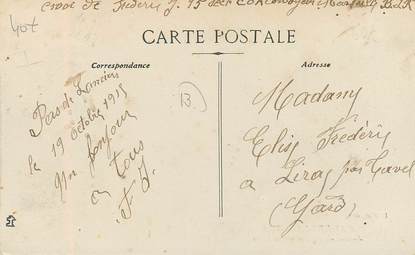 envoi de Frédéric J. 15e
40f
CARTE POSTALE
Correspondance
Adresse
Pas de Lanciers
le 19 octobre 1915
Un bonjour
a tous
F J.
B
Madame
Elise Frédéric
a Lirac par Tavel
(Gard)